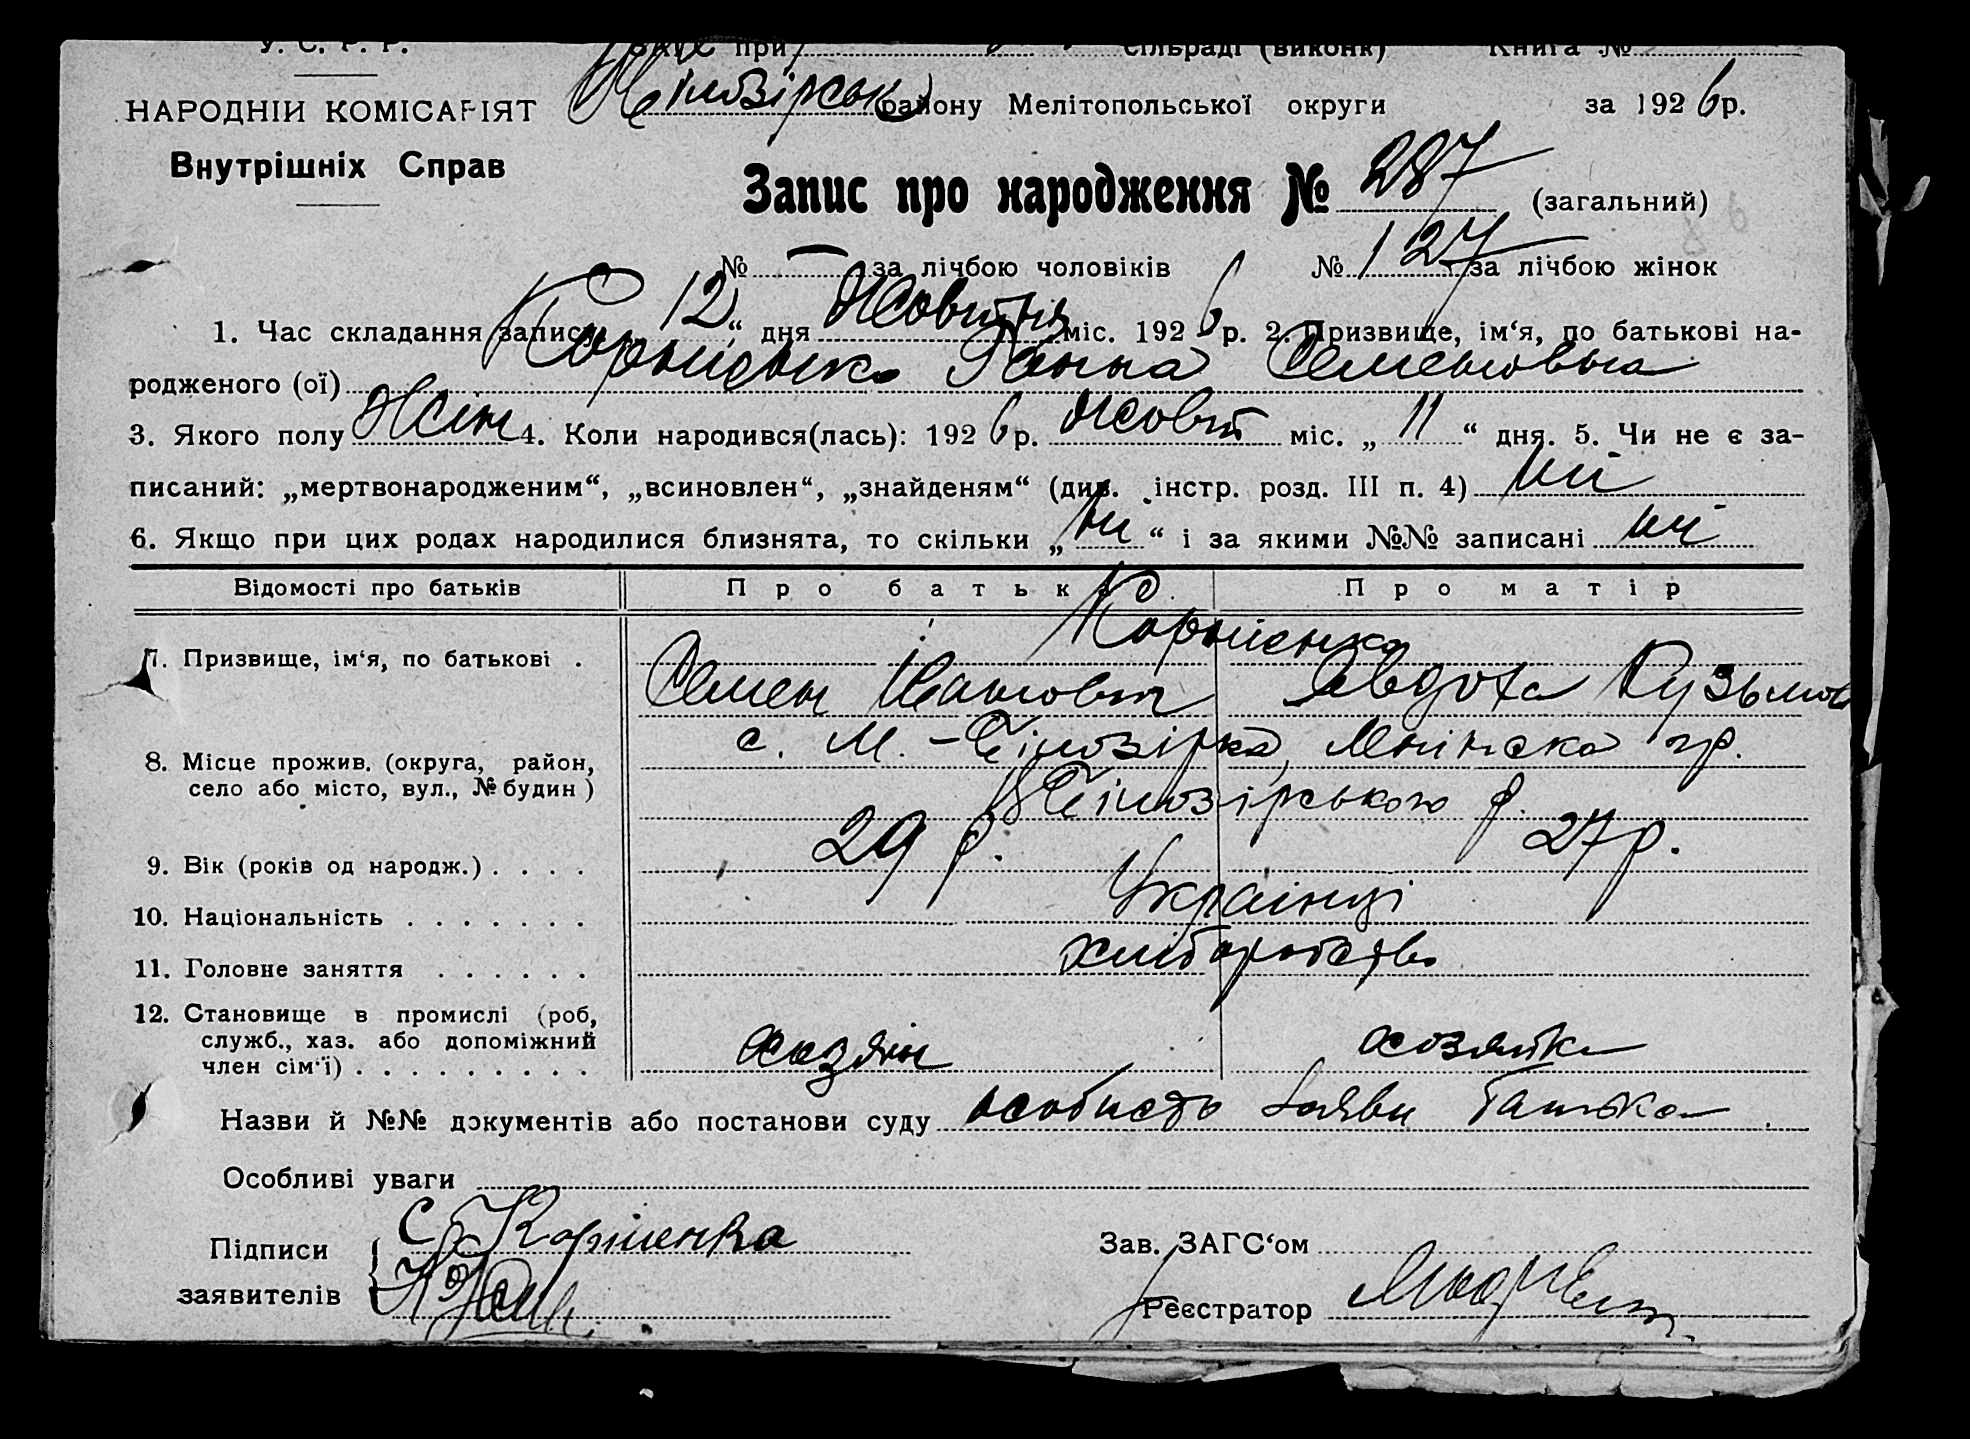 У. С. Р. Р. при сільраді (виконк) Книга №
НАРОДНІЙ КОМІСАРІЯТ району Мелітопольської округи за 1926 р.
Внутрішніх Справ
Запис про народження № 287 (загальний)
№ — за лічбою чоловіків № 127 за лічбою жінок
1. Час складання запису 12 “ дня Жовтня міс. 1926 р. 2. Призвище, ім‘я, по батькові на-
родженого (ої) Корнієнко Ганна Семеновна
3. Якого полу Жін 4. Коли народився(лась): 1926 р. Жовт міс. „ 11 “ дня. 5. Чи не є за-
писаний: „мертвонародженим“, „всиновлен“, „знайденям“ (див. інстр. розд. III п. 4) ні
6. Якщо при цих родах народилися близнята, то скільки „ ні “ і за якими №№ записані ні
Відомості про батьків Про батька Про матір
Корнієнко
7. Призвище, ім‘я, по батькові . Семен Іванович Явдоха Кузьмов
8. Місце прожив. (округа, район, село або місто, вул., № будин) с. М.-Білозірка,
Білозірського р.
9. Вік (років од народж.) . . . . 29 р. 27 р.
10. Національність . . . . . . . Українці
11. Головне заняття . . . . . . хліборобство
12. Становище в промислі (роб,
служб., хаз. або допоміжний
член сім‘ї) . . . . . . . . . хазяін хозяйка
Назви й №№ документів або постанови суду особиста заява батька
Особливі уваги
Підписи С Корніенко Зав. ЗАГС‘ом
заявителів Реєстратор